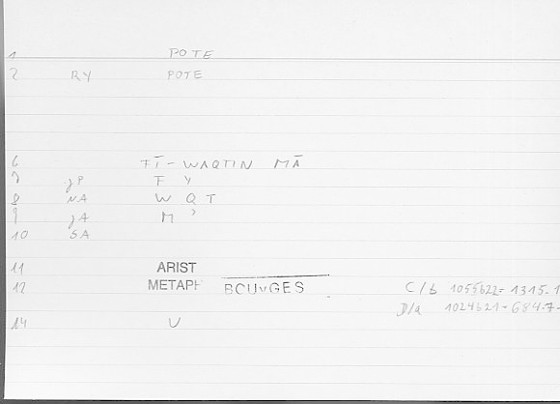 1 POTE
2 RY POTE
6 FĪ-WAQTIN MĀ
7 gP F Y
8 NA W Q T
9 gA M ʾ
10 SA
11 ARIST
12 METAPH BOUYGES C/b 1055b22= 1315.1
D/a 1024b21- 684.7-
14 V